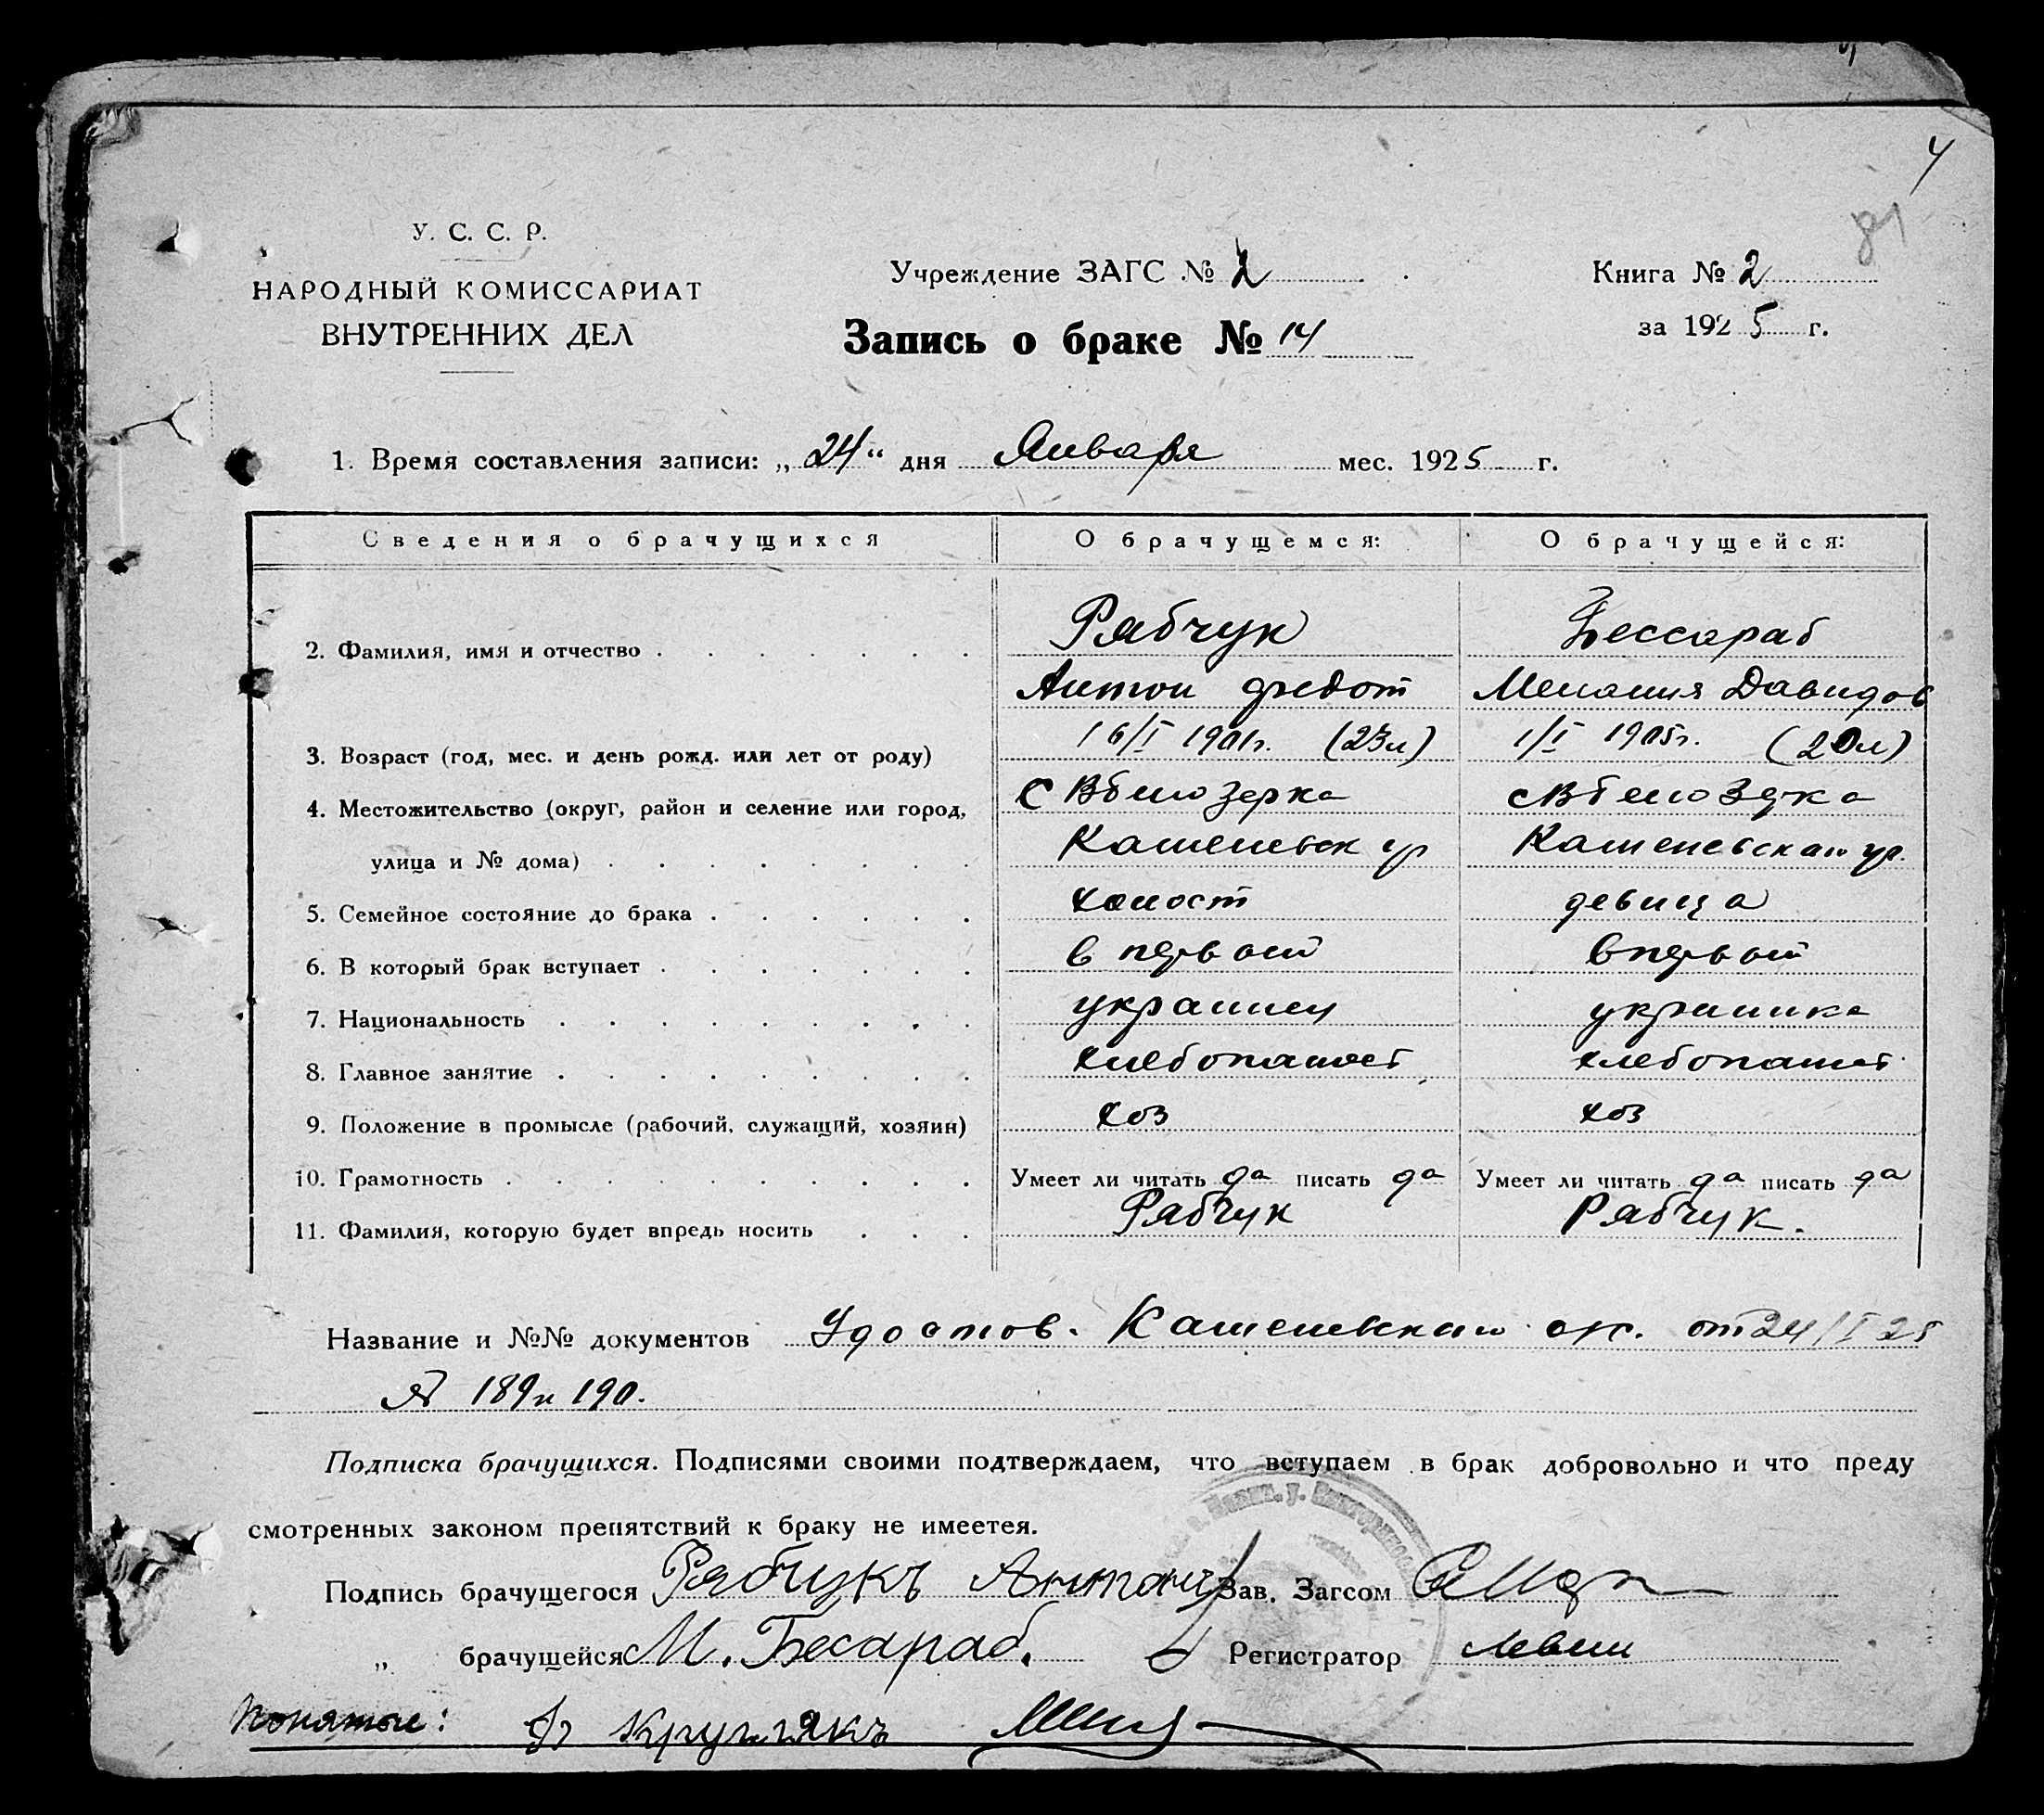 4
81
У. С. С. Р.
НАРОДНЫЙ КОМИССАРИАТ
ВНУТРЕННИХ ДЕЛ
Учреждение ЗАГС № 2
Запись о браке № 14
Книга № 2
за 1925 г.
1. Время составления записи: „24“ дня Января мес. 1925 г.
Сведения о брачущихся О брачущемся: О брачущейся:
Рябчук Бессараб
2. Фамилия, имя и отчество
Антон Федот Мелания Давидов
3. Возраст (год, мес. и день рожд. или лет от роду) 16/I 1901г. (23л) 1/I 1905г. (20л)
4. Местожительство (округ, район и селение или город, с Вбелозерка с Вбелозерка
улица и № дома) Каменевск ул Каменевская ул.
5. Семейное состояние до брака холост девица
6. В который брак вступает в первый в первый
7. Национальность украинец украинка
8. Главное занятие хлебопашест хлебопашест
9. Положение в промысле (рабочий, служащий, хозяин) хоз хоз
10. Грамотность Умеет ли читать да писать да Умеет ли читать да писать да
11. Фамилия, которую будет впредь носить Рябчук Рябчук.
Название и №№ документов Удостов. от 24/I 25
№ 189 и 190.
Подписка брачущихся. Подписями своими подтверждаем, что вступаем в брак добровольно и что преду
смотренных законом препятствий к браку не имеетея.
Подпись брачущегося Рябчукъ Антонъ Зав. Загсом
„ брачущейся М. Бесараб. Регистратор Левин
Понятые: Кругмякъ